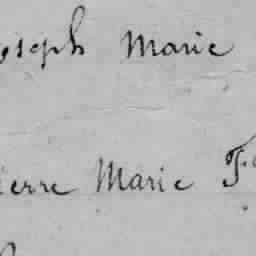 oseph Marie
ierre Marie F